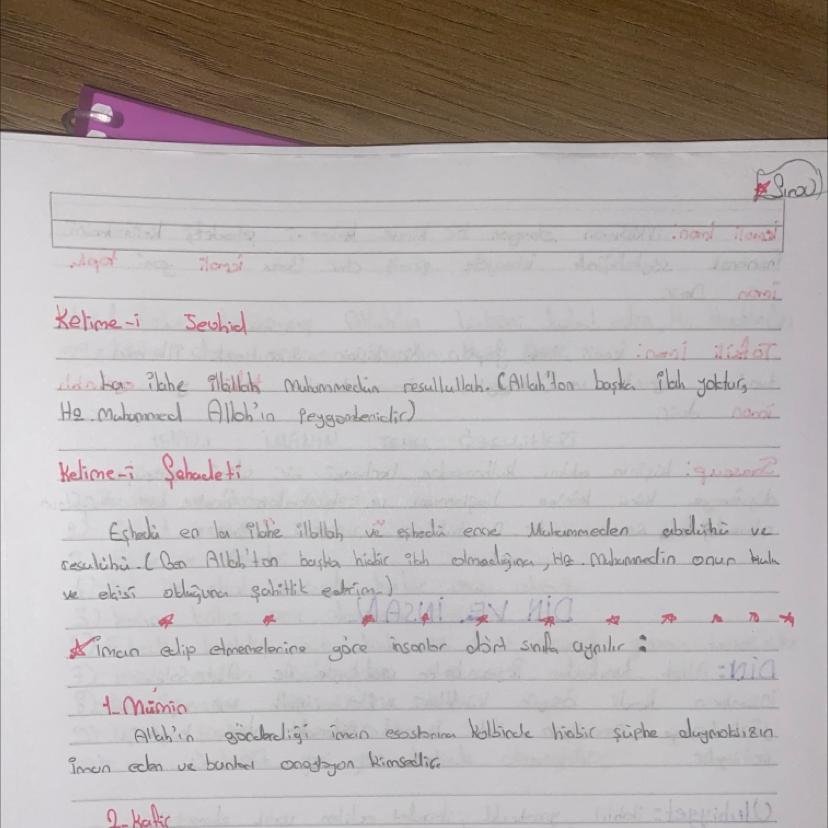 Sınav
Kelime-i Tevhid
La ilahe illallah Muhammedün resullullah. (Allah'tan başka ilah yoktur,
Hz. Muhammed Allah'ın Peygamberidir)
Kelime-i Şahadeti
Eşhedü en la ilahe illallah ve eşhedü enne Muhammeden abdühü ve
resulühü. (Ben Allah'tan başka hiçbir ilah olmadığına, Hz. Muhammedin onun kulu
ve elçisi olduğuna şahitlik ederim.)
İman edip etmemelerine göre insanlar dört sınıfa ayrılır:
1. Mümin
Allah'ın gönderdiği iman esaslarına kalbinde hiçbir şüphe duymaksızın
iman eden ve bunları onaylayan kimsedir.
2. Kafir